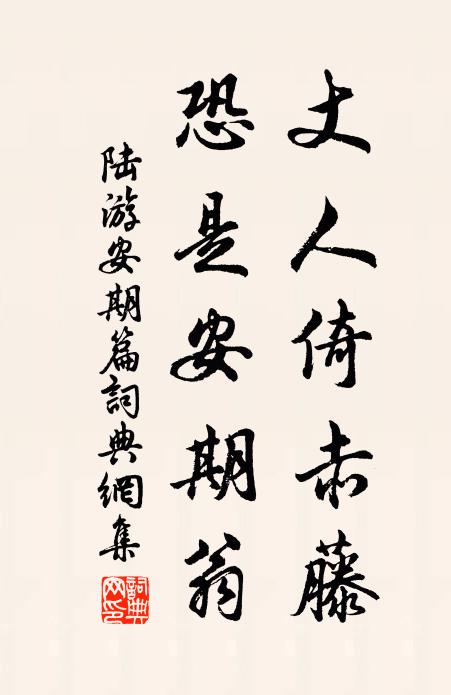 丈人倚赤藤
恐是安期翁
陸游安期篇詞典網集
詞典網印